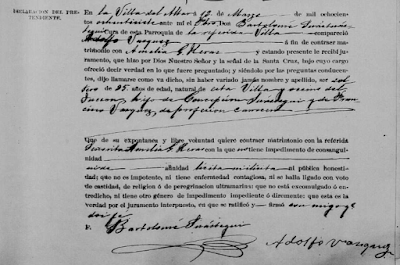 DECLARACION DEL PRE-
TENDIENTE.
En la Villa del Mar á 12 de Marzo de mil ochocien
tos noventisiete ante mí el Pbro Bartolomé
Cura de esta Parroquia de la referida Villa compareció
Adolfo Vasquez á fin de contraer ma-
trimonio con Amalia G. Heras y estando presente le recibí jura-
mento, que hizo por Dios Nuestro Señor y la señal de la Santa Cruz, bajo cuyo cargo
ofreció decir verdad en lo que fuere preguntado; y siéndolo por las preguntas conducen-
tes, dijo llamarse como va dicho, sin haber variado jamás nombre y apellido, ser
de 25 años de edad, natural de esta Villa y vecino del
hijo de Concepción y de Fran
cisco Vasquez, de profesion
Que de su expontanea y libre voluntad quiere contraer matrimonio con la referida
Señorita Amalia G. Heras con la que no tiene impedimento de consangui-
nidad afinidad ni pública hones-
tidad; que no es impotente, ni tiene enfermedad contagiosa, ni se ha ligado con voto
de castidad, de religión ó de peregrinacion ultramarina: que no está excomulgado ó en-
tredicho, ni tiene otro género de impedimento impediente ó dirimente; que esta es la
verdad por el juramento interpuesto, en que se ratificó y firmó conmigo y
doi fé
F. Bartolomé
Adolfo Vasquez